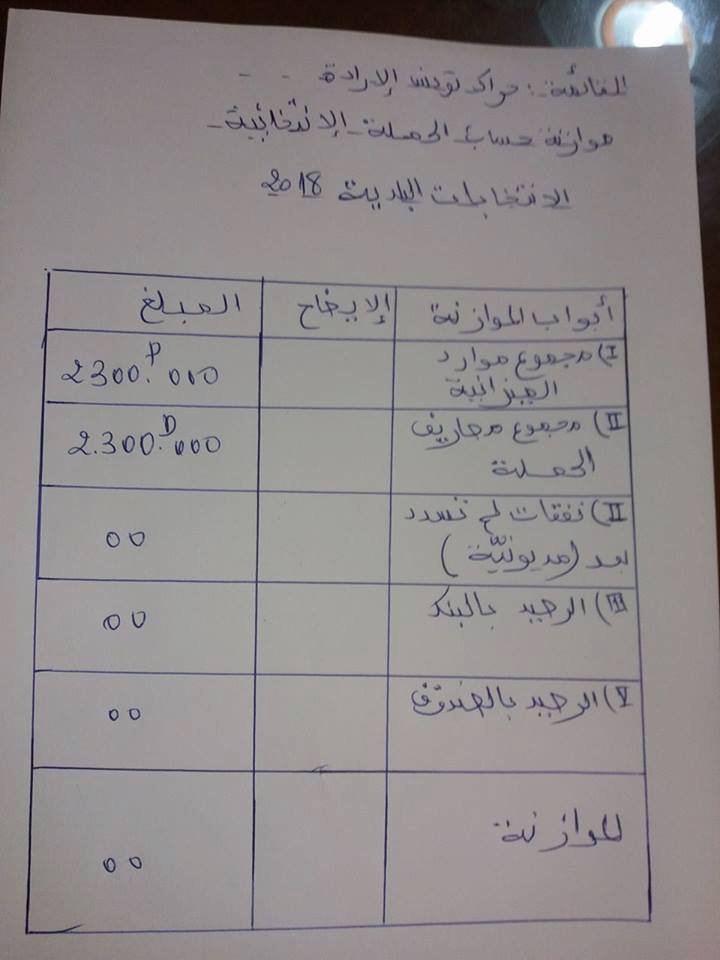 القائمة: حراك تونس الإرادة
موازنة حساب الحملة الإنتخابية
الانتخابات البلدية 2018
أبواب الموازنة الإيضاح المبلغ
I) مجموع موارد
الميزانية
2300.D000
II) مجموع مصاريف
الحملة
2.300.D000
II) نفقات لم تسدد
بعد (مديونيّة)
00
III) الرصيد بالبنك
00
V) الرصيد بالصندوق
00
الموازنة
00